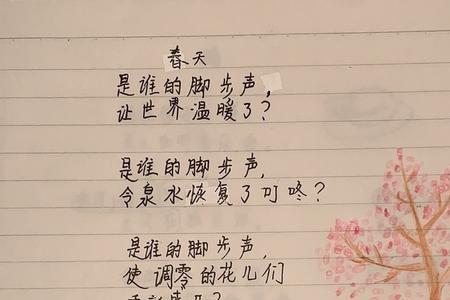 春天
是谁的脚步声,
让世界温暖了?
是谁的脚步声,
令泉水恢复了叮咚?
是谁的脚步声,
使调零的花儿们